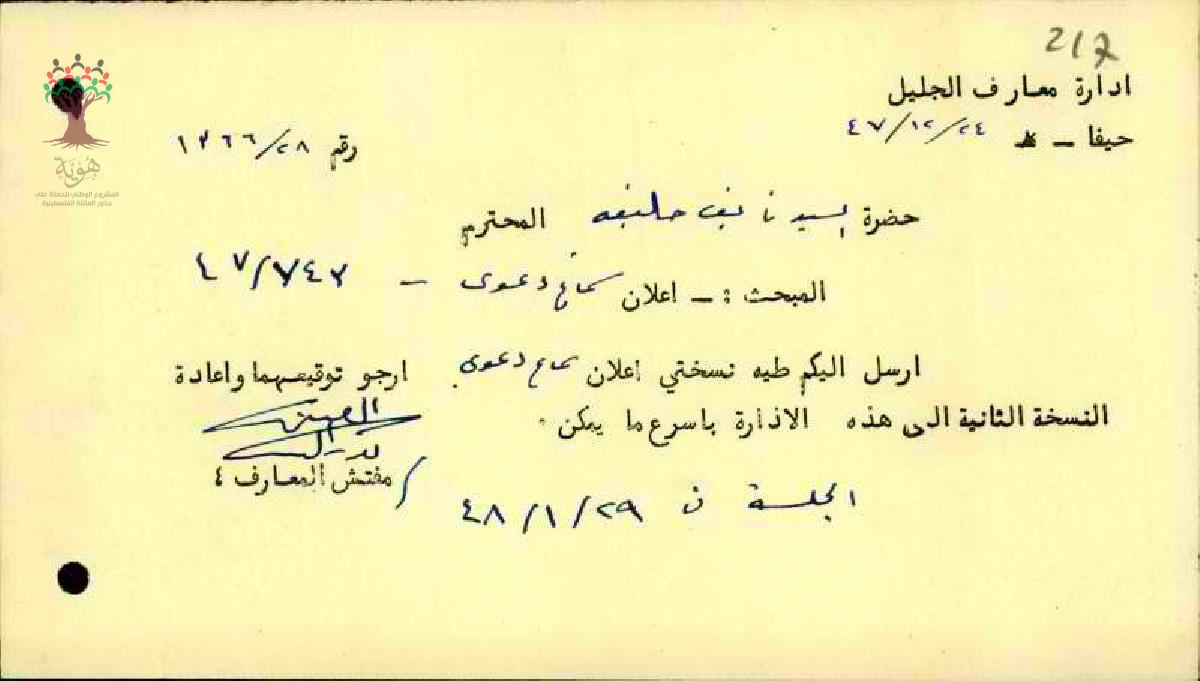 217
ادارة معارف الجليل
حيفا - ٤٧/١٢/٢٤
رقم ١٣٦٦/٢٨
هُويّة
المشروع الوطني للحفاظ على
جذور العائلة الفلسطينية
حضرة السيد نايف خليفه المحترم
المبحث :- اعلان سماع دعوى - ٤٧/٧٤٣
ارسل اليكم طيه نسختي اعلان سماع دعوى ارجو توقيعهما واعادة
النسخة الثانية الى هذه الادارة باسرع ما يمكن .
/ مفتش المعارف ٤
الجلسة في ٤٨/١/٢٩